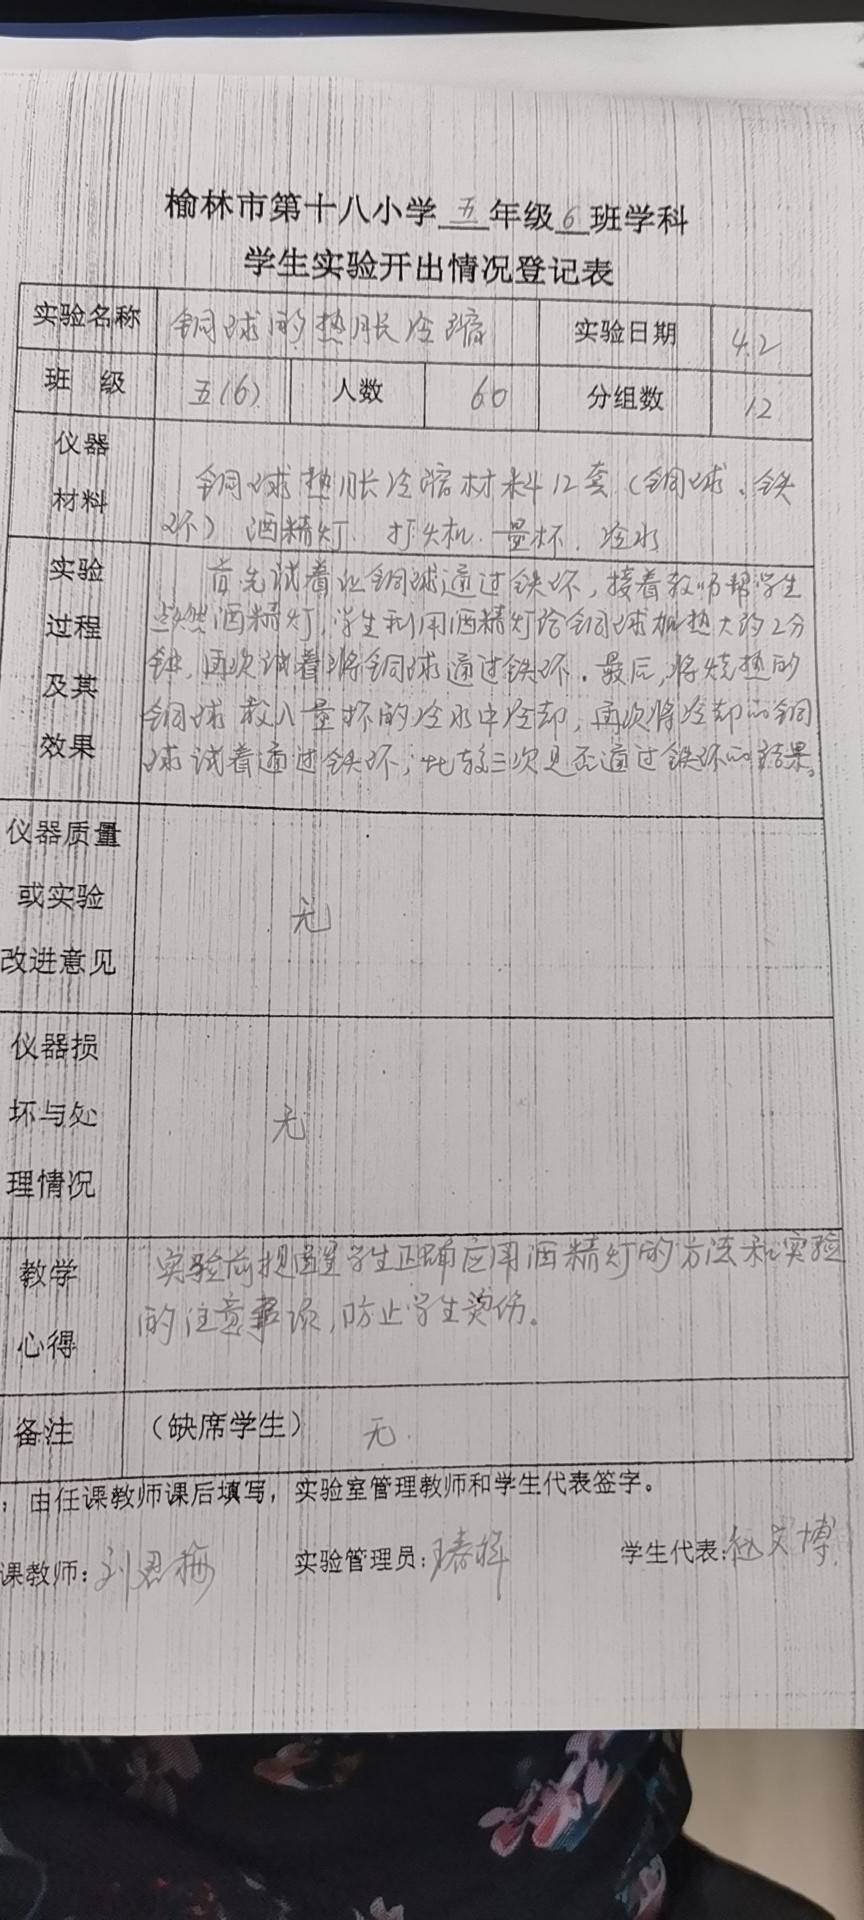 榆林市第十八小学五年级6班学科
学生实验开出情况登记表
实验名称 铜球的热胀冷缩 实验日期 4.2
班 级 五(6) 人数 60 分组数 12
仪器
材料
铜球热胀冷缩材料12套（铜球、铁
环）酒精灯、打火机、量杯、冷水
实验
过程
及其
效果
首先试着让铜球通过铁环，接着教师帮学生
点燃酒精灯，学生利用酒精灯给铜球加热大约2分
钟，再次试着将铜球通过铁环。最后，将烧热的
铜球放入量杯的冷水中冷却，再次将冷却的铜
球试着通过铁环，比较三次是否通过铁环的结果。
仪器质量
或实验
改进意见
无
仪器损
坏与处
理情况
无
教学
心得
实验前提醒学生正确应用酒精灯的方法和实验
的注意事项，防止学生烫伤。
备注 （缺席学生） 无
：由任课教师课后填写，实验室管理教师和学生代表签字。
课教师：刘君梅 实验管理员： 学生代表：